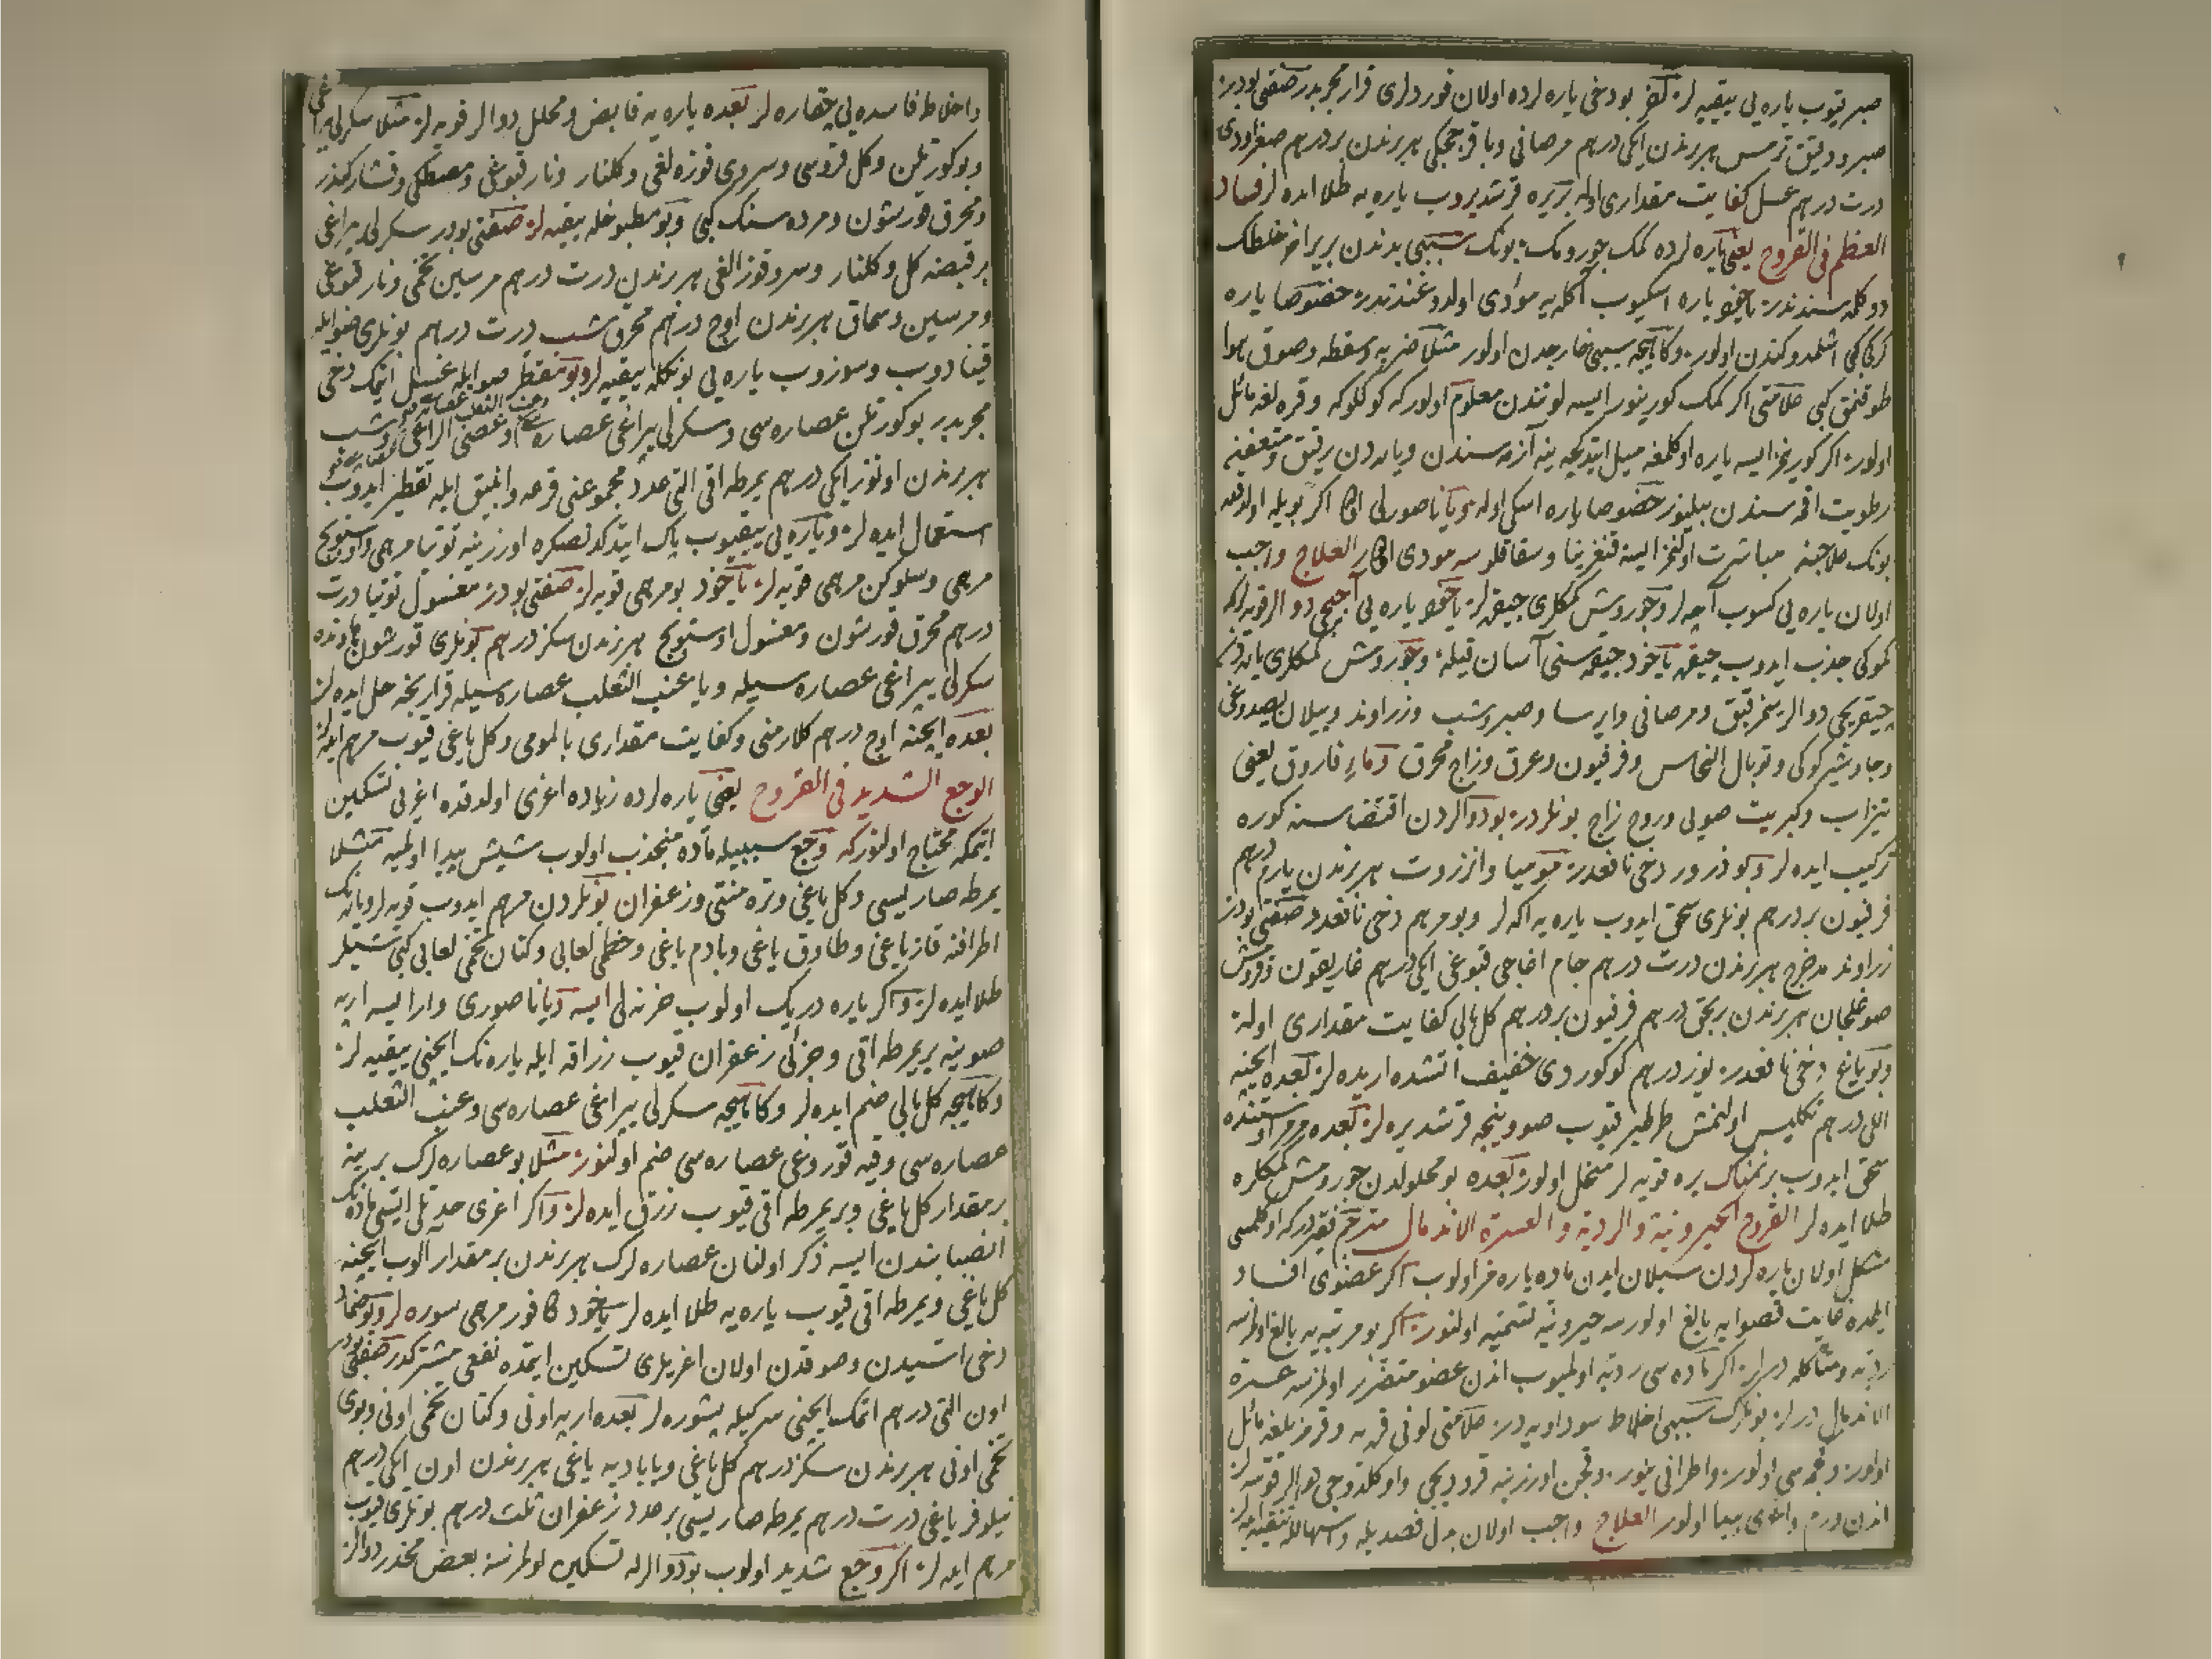 صبر قیوب یاره یی ییقیه لر بو دخی یاره لرده اولان قوردلری قرار مجربدر صفتی بودر
صبر و دقیق ترمس هر برندن ایکی درهم مرصافی و باقر هر برندن بر درهم صغر اودی
درت درهم عسل کفایت مقداری اوله قرشدیروب یاره یه طلا ایده لر فساد
العظم فی القروح یعنی یاره لرده کمک چورومک بونک سببی بدندن بریرامز خلطک
دوکلمسندندر یاخود یاره اسکیوب اکله یه مؤدی اولدوغندندر خصوصا یاره
کرک کبی اشلمدوکندن اولور وکاهیجه سببی خارجدن اولور مثلا ضربه وسقطه وصوق هوا
طوقنمق کبی علامتی اکر کمک کورینور ایسه لونندن معلوم اولور که کوکلوکه وقره لغه مائل
اولور اکر کورینمز ایسه یاره اوکلمغه میل ایتدکجه ینه آزمه سندن ویاره دن رقیق و متعفنه
رطوبت اقمه سندن بیلینور خصوصا یاره اسکی اوله ویا ناصورلی اکر بویله اولدقده
بونک علاجنه مباشرت اولنمز ایسه قنغرینا وسقاقلوسه مودی اولور العلاج واجب
اولان یاره یی کسوب آچه لر و چورومش کمکلری چیقره لر یاخود یاره یی آچیجی دوالر قویه لر که
کموکی جذب ایدوب چیقره یاخود چیقمسنی آسان قیله و چورومش کمکلری
چیقریجی دوالر دقیق ومرصافی وایرسا وصبر وشب وزراوند وییلان یصدوغی
وجاوشیر کوکی وتوبال النحاس وفرفیون وعرق وزاج محرق وماء فاروق یعنی
تیزاب وکبریت صویی وروح زاج بونلردر بو دوالردن اقتضاسنه کوره
ترکیب ایده لر وبو ذرور دخی نافعدر مومیا وانزروت هر برندن یارم درهم
فرفیون بر درهم بونلری سحق ایدوب یاره یه اکه لر وبو مرهم دخی نافعدر صفتی بودر
زراوند مدحرج هر برندن درت درهم جام اغاجی قبوغی ایکی درهم غاریقون
صوغلجان هر برندن بر بچق درهم فرفیون بر درهم کل بالی کفایت مقداری اوله
وبو یاغ دخی نافعدر یوز درهم کوکوردی خفیف اتشده اریده لر بعده ایچنه
اللی درهم تکلیس اولنمش طرطیر قیوب صووینجه قرشدیره لر بعده مرمر اوستنده
سحق ایدوب بر نمناک یره قویه لر منحل اولور بعده بو محلولدن چورومش کمکلره
طلا ایده لر القروح الخیرونیة والردیة والعسرة الاندمال مترجم فقیر درکه اوکلمسی
مشکل اولان یاره لردن سیلان ایدن ماده یاره مز اولوب اکر عضوی افساد
ایلمده غایت قصوایه بالغ اولورسه خیرونیه تسمیه اولنور اکر بو مرتبه یه بالغ اولمزسه
ردیه ومتأکله دیرلر اکر ماده سی ردیه اولمیوب اندن عضو متضرر اولمزسه عسرة
الاندمال دیرلر بونلرک سببی اخلاط سوداویه در علامتی لونی قره یه وقرمزیلغه مائل
اولور واطرافی وقچن اوزرینه قورودیجی واوکلدوجی دوالر قونسه لر
اندن ورم واغری پیدا اولور العلاج واجب اولان بدنی فصد یله واسهالله تنقیه ایده لر
واخلاط فاسده یی چقاره لر بعده یاره یه قابض ومحلل دوالر قویه لر مثلا سکرلی یپراغی
وبوکورتلن وکل قروسی وسروی قوزه لغی وکلنار ونار قبوغی ومصطکی وقشار کندر
ومحرق قورشون ومرده سنک کبی وبو مطبوخله ییقیه لر صفتی بودر سکرلی یپراغی
بر قبضه کل وکلنار وسرو قوزالغی هر برندن درت درهم مرسین تخمی ونار قبوغی
ومرسین وسماق هر برندن اوچ درهم محرق شب درت درهم بونلری صو ایله
قینادوب وسوزوب یاره یی بونکله ییقیه لر وبو مقطر صو ایله غسل ایتمک دخی
مجربدر بوکورتلن عصاره سی وسکرلی یپراغی عصاره سی وعصی الراعی وشب
وعنب الثعلب عصاره سی
هر برندن اوتوز ایکی درهم یمرطه اقی التی عدد مجموعنی قرعه وانبیق ایله تقطیر ایدوب
استعمال ایده لر ویاره یی ییقیوب پاک ایتدکدنصکره اوزرینه توتیا مرهمی واوستوبج
مرهمی وسلوکن مرهمی قویه لر یاخود بو مرهمی قویه لر صفتی بودر مغسول توتیا درت
درهم محرق قورشون ومغسول اوستوبج هر برندن سکز درهم بونلری قورشون هاونده
سکرلی یپراغی عصاره سیله ویا عنب الثعلب عصاره سیله قرارینجه حل ایده لر
بعده ایچنه اوچ درهم کلارمنی وکفایت مقداری بالمومی وکل یاغی قیوب مرهم ایله لر
الوجع الشدید فی القروح یعنی یاره لرده زیاده اغری اولدقده اغریی تسکین
ایتمکه محتاج اولنور که وجع سببیله ماده منجذب اولوب شیش پیدا اولمیه مثلا
یمرطه صاریسی وکل یاغی وتره منتی وزعفران بونلردن مرهم ایدوب قویه لر ویاره نک
اطرافنه قاز یاغی وطاوق یاغی وبادم یاغی وخطمی لعابی وکتان تخمی لعابی کبی شیلر
طلا ایده لر واکر یاره درینک اولوب خزنه لی ایسه ویا ناصوری وار ایسه ارپه
صوینه بر یمرطه اقی وجزئی زعفران قیوب زراقه ایله یاره نک ایچنی ییقیه لر
وکاهیجه کل بالی ضم ایده لر وکاهیجه سکرلی یپراغی عصاره سی وعنب الثعلب
عصاره سی وقیه قوروغی عصاره سی ضم اولنور مثلا بو عصاره لرک برینه
بر مقدار کل یاغی وبر یمرطه اقی قیوب زرق ایده لر واکر اغری حدتلی ایسی ماده نک
انصبابندن ایسه ذکر اولنان عصاره لرک هر برندن بر مقدار الوب ایچنه
کل یاغی ویمرطه اقی قیوب یاره یه طلا ایده لر یاخود کافور مرهمی سوره لر وبو ضماد
دخی استیدن وصوقدن اولان اغریلری تسکین ایتمده نفعی مشترکدر صفتی بودر
اون التی درهم اتمک ایچنی سرکیله پشوره لر بعده ارپه اونی وکتان تخمی اونی وبوی
تخمی اونی هر برندن سکز درهم کل یاغی وبابادیه یاغی هر برندن اون ایکی درهم
نیلوفر یاغی درت درهم یمرطه صاریسی بر عدد زعفران ثلث درهم بونلری قیوب
مرهم ایله لر اکر وجع شدید اولوب بو دوالرله تسکین اولمزسه بعض مخدر دوالر